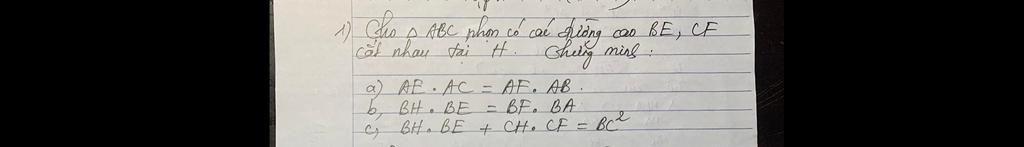 1) Cho △ ABC nhọn có các đường cao BE, CF
cắt nhau tại H. Chứng minh:
a) AE . AC = AF . AB.
b, BH . BE = BF . BA
c, BH . BE + CH . CF = BC²